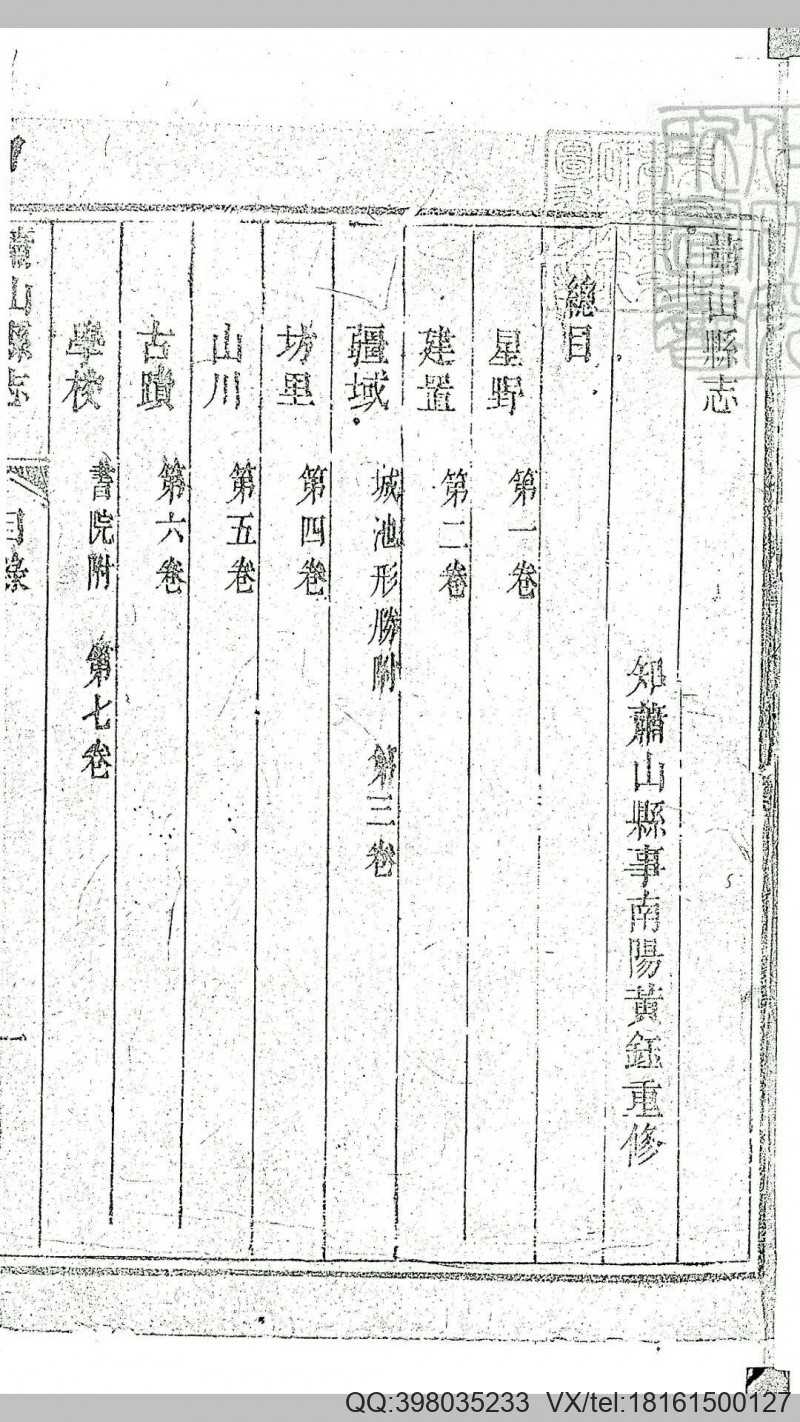 蕭山縣志
知蕭山縣事南陽黃鈺重修
總目
星野 第一卷
建置 第二卷
疆域 城池形勝附 第三卷
坊里 第四卷
山川 第五卷
古蹟 第六卷
學校 書院附 第七卷
蕭山縣志 目錄 一
QQ:398035233 VX/tel:18161500127